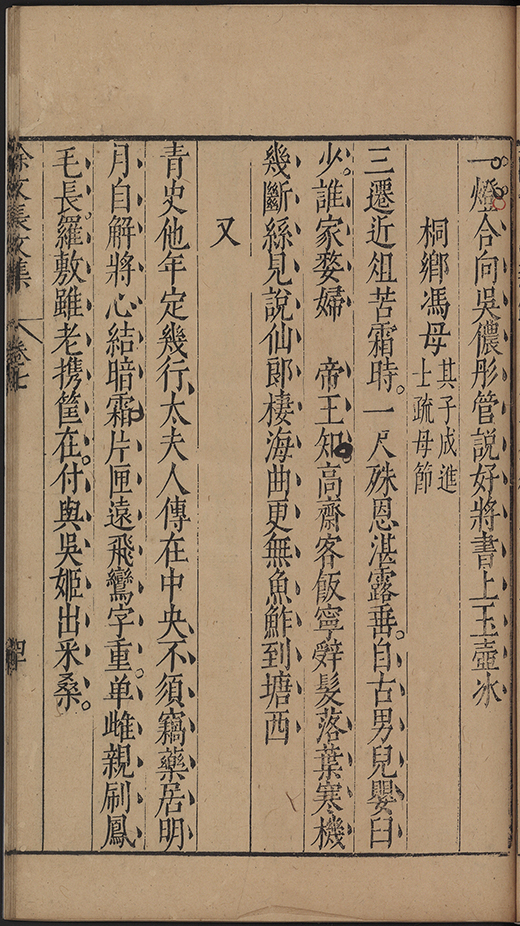 一燈合向吳儂彤管説好將書上玉壺冰
桐鄉馮母 其子成進
士疏母節
三遷近俎苦霜時。一尺殊恩湛露垂。自古男兒嬰臼
少。誰家嫠婦 帝王知。高齋客飯寧辭髮落葉寒機
幾斷絲見說仙郎棲海曲更無魚鮓到塘西
又
青史他年定幾行太夫人傳在中央。不須竊藥居明
月自解將心結暗霜片匣遠飛鸞字重。单雌親刷鳳
毛長。羅敷雖老携筐在。付與吳姬出采桑。
徐文長文集 卷七